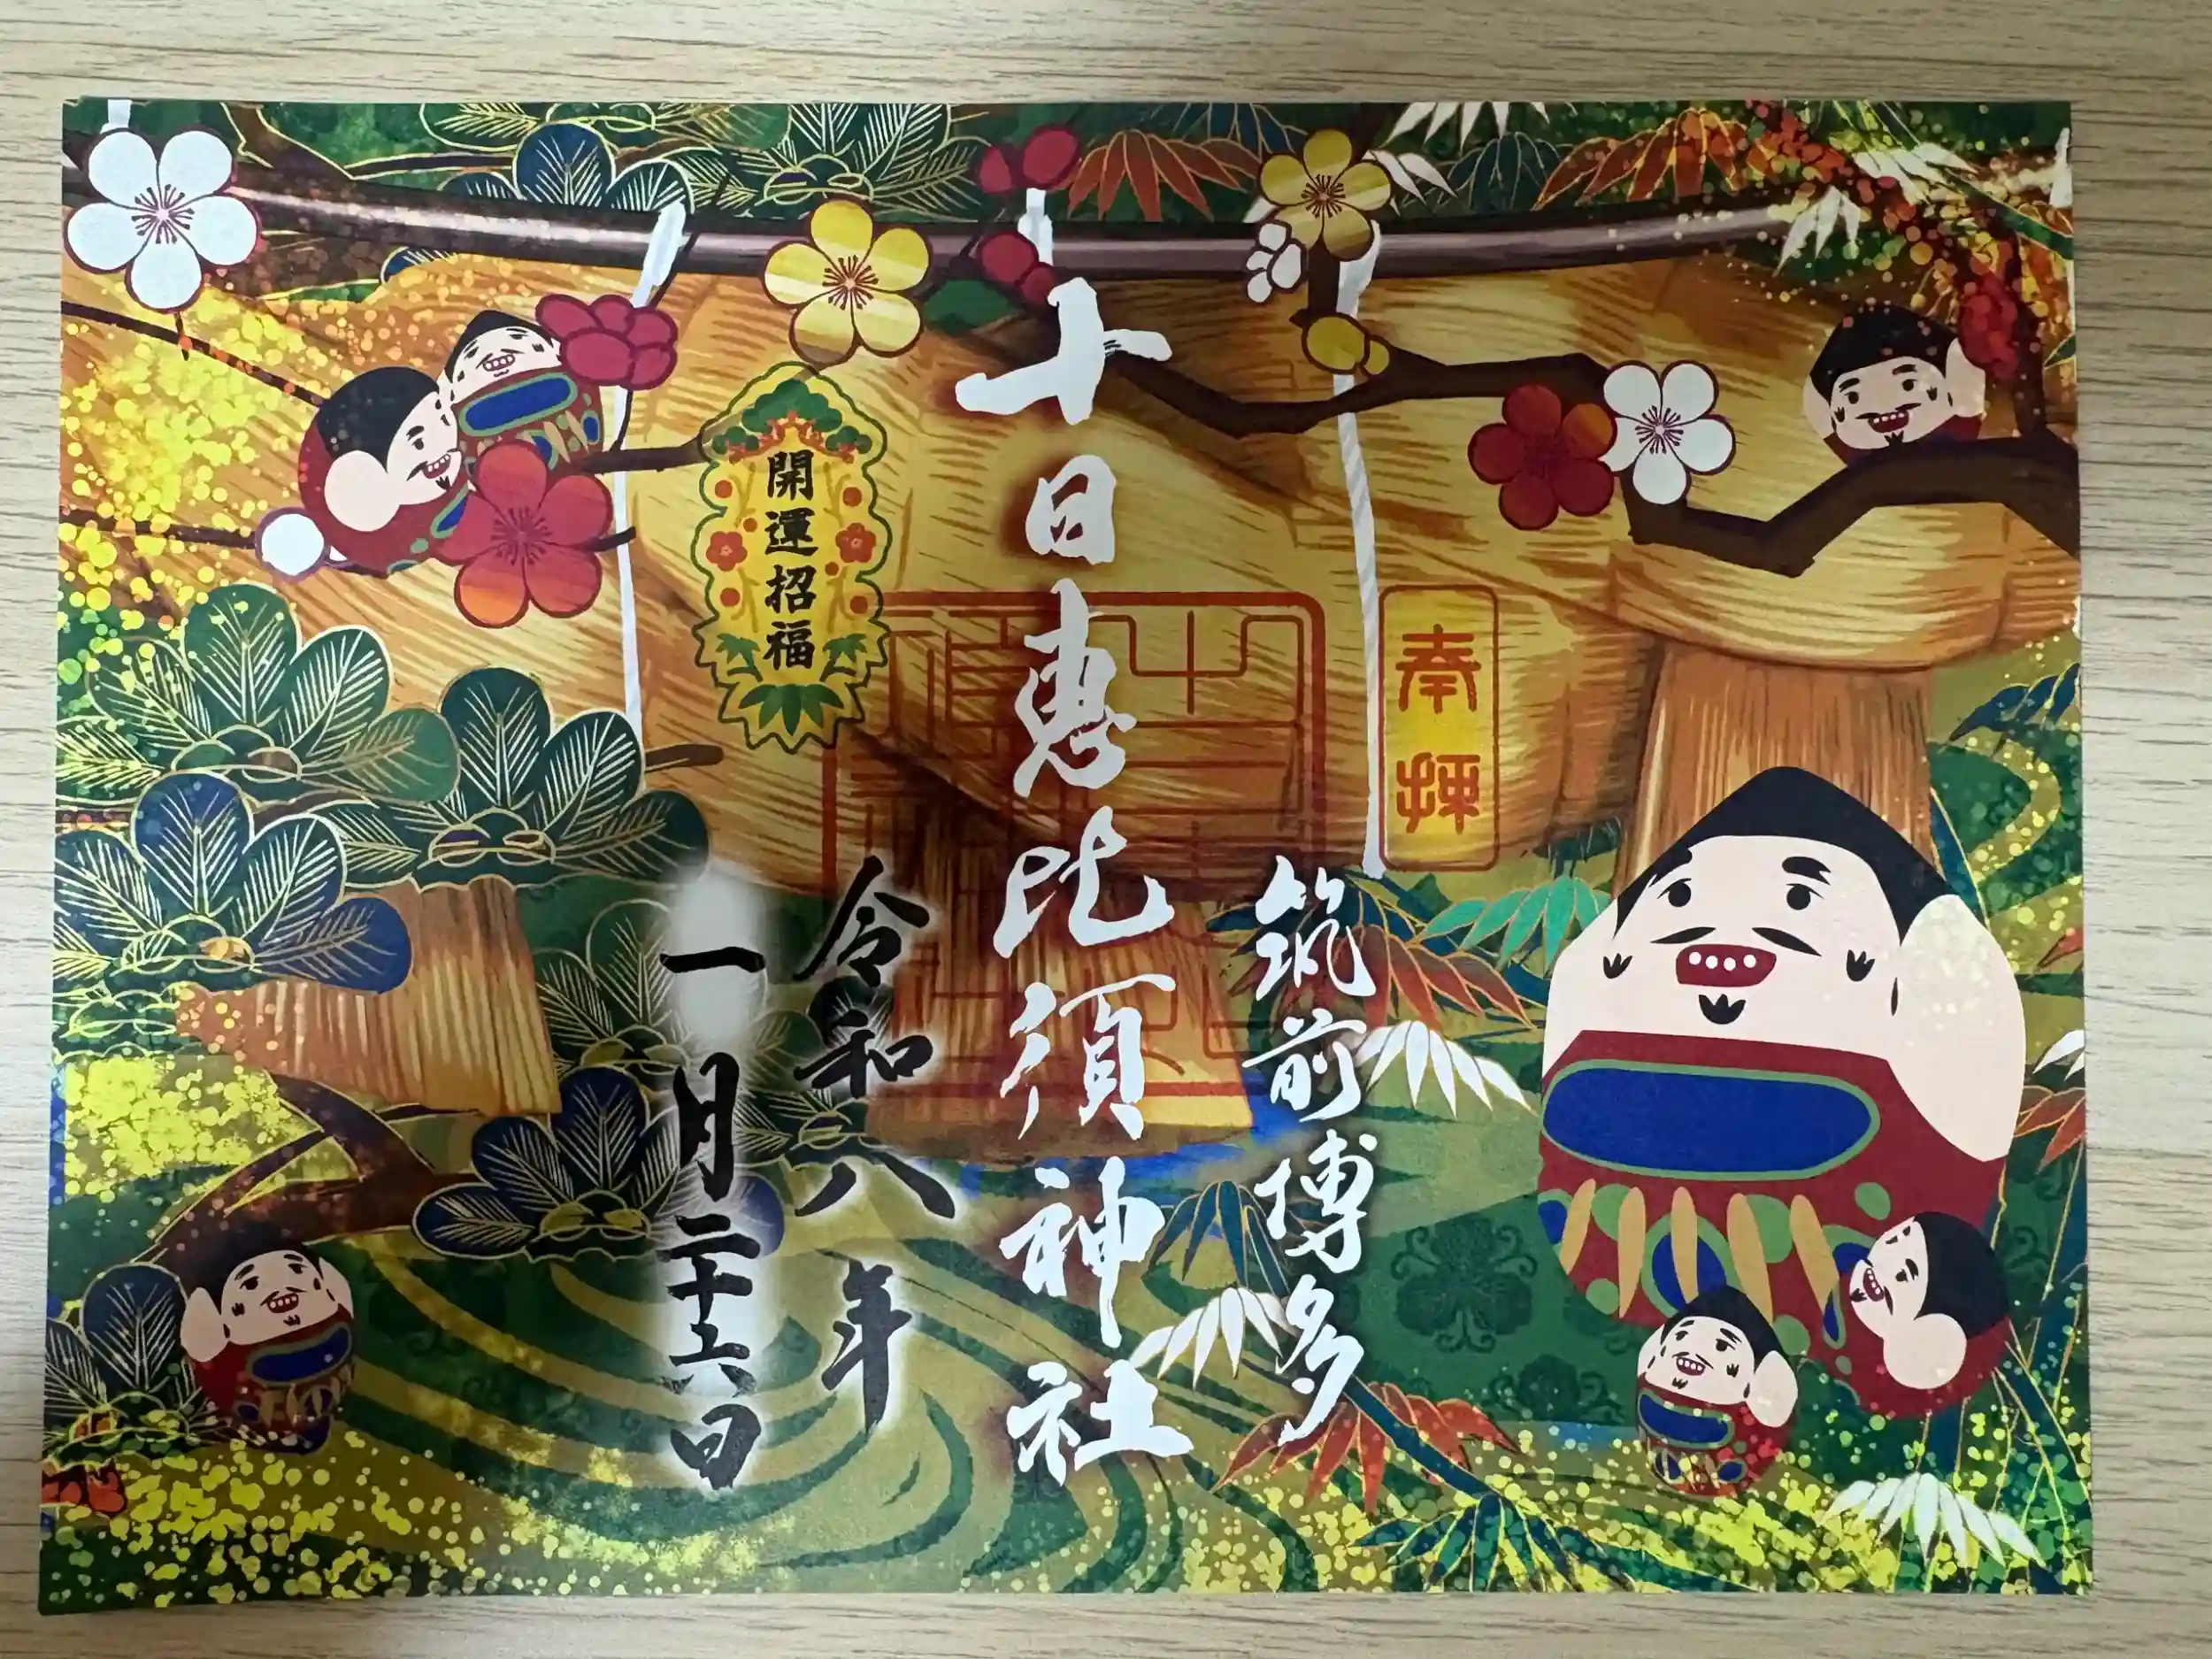 奉拝
筑前博多
十日恵比須神社
開運招福
令和八年
一月二十六日